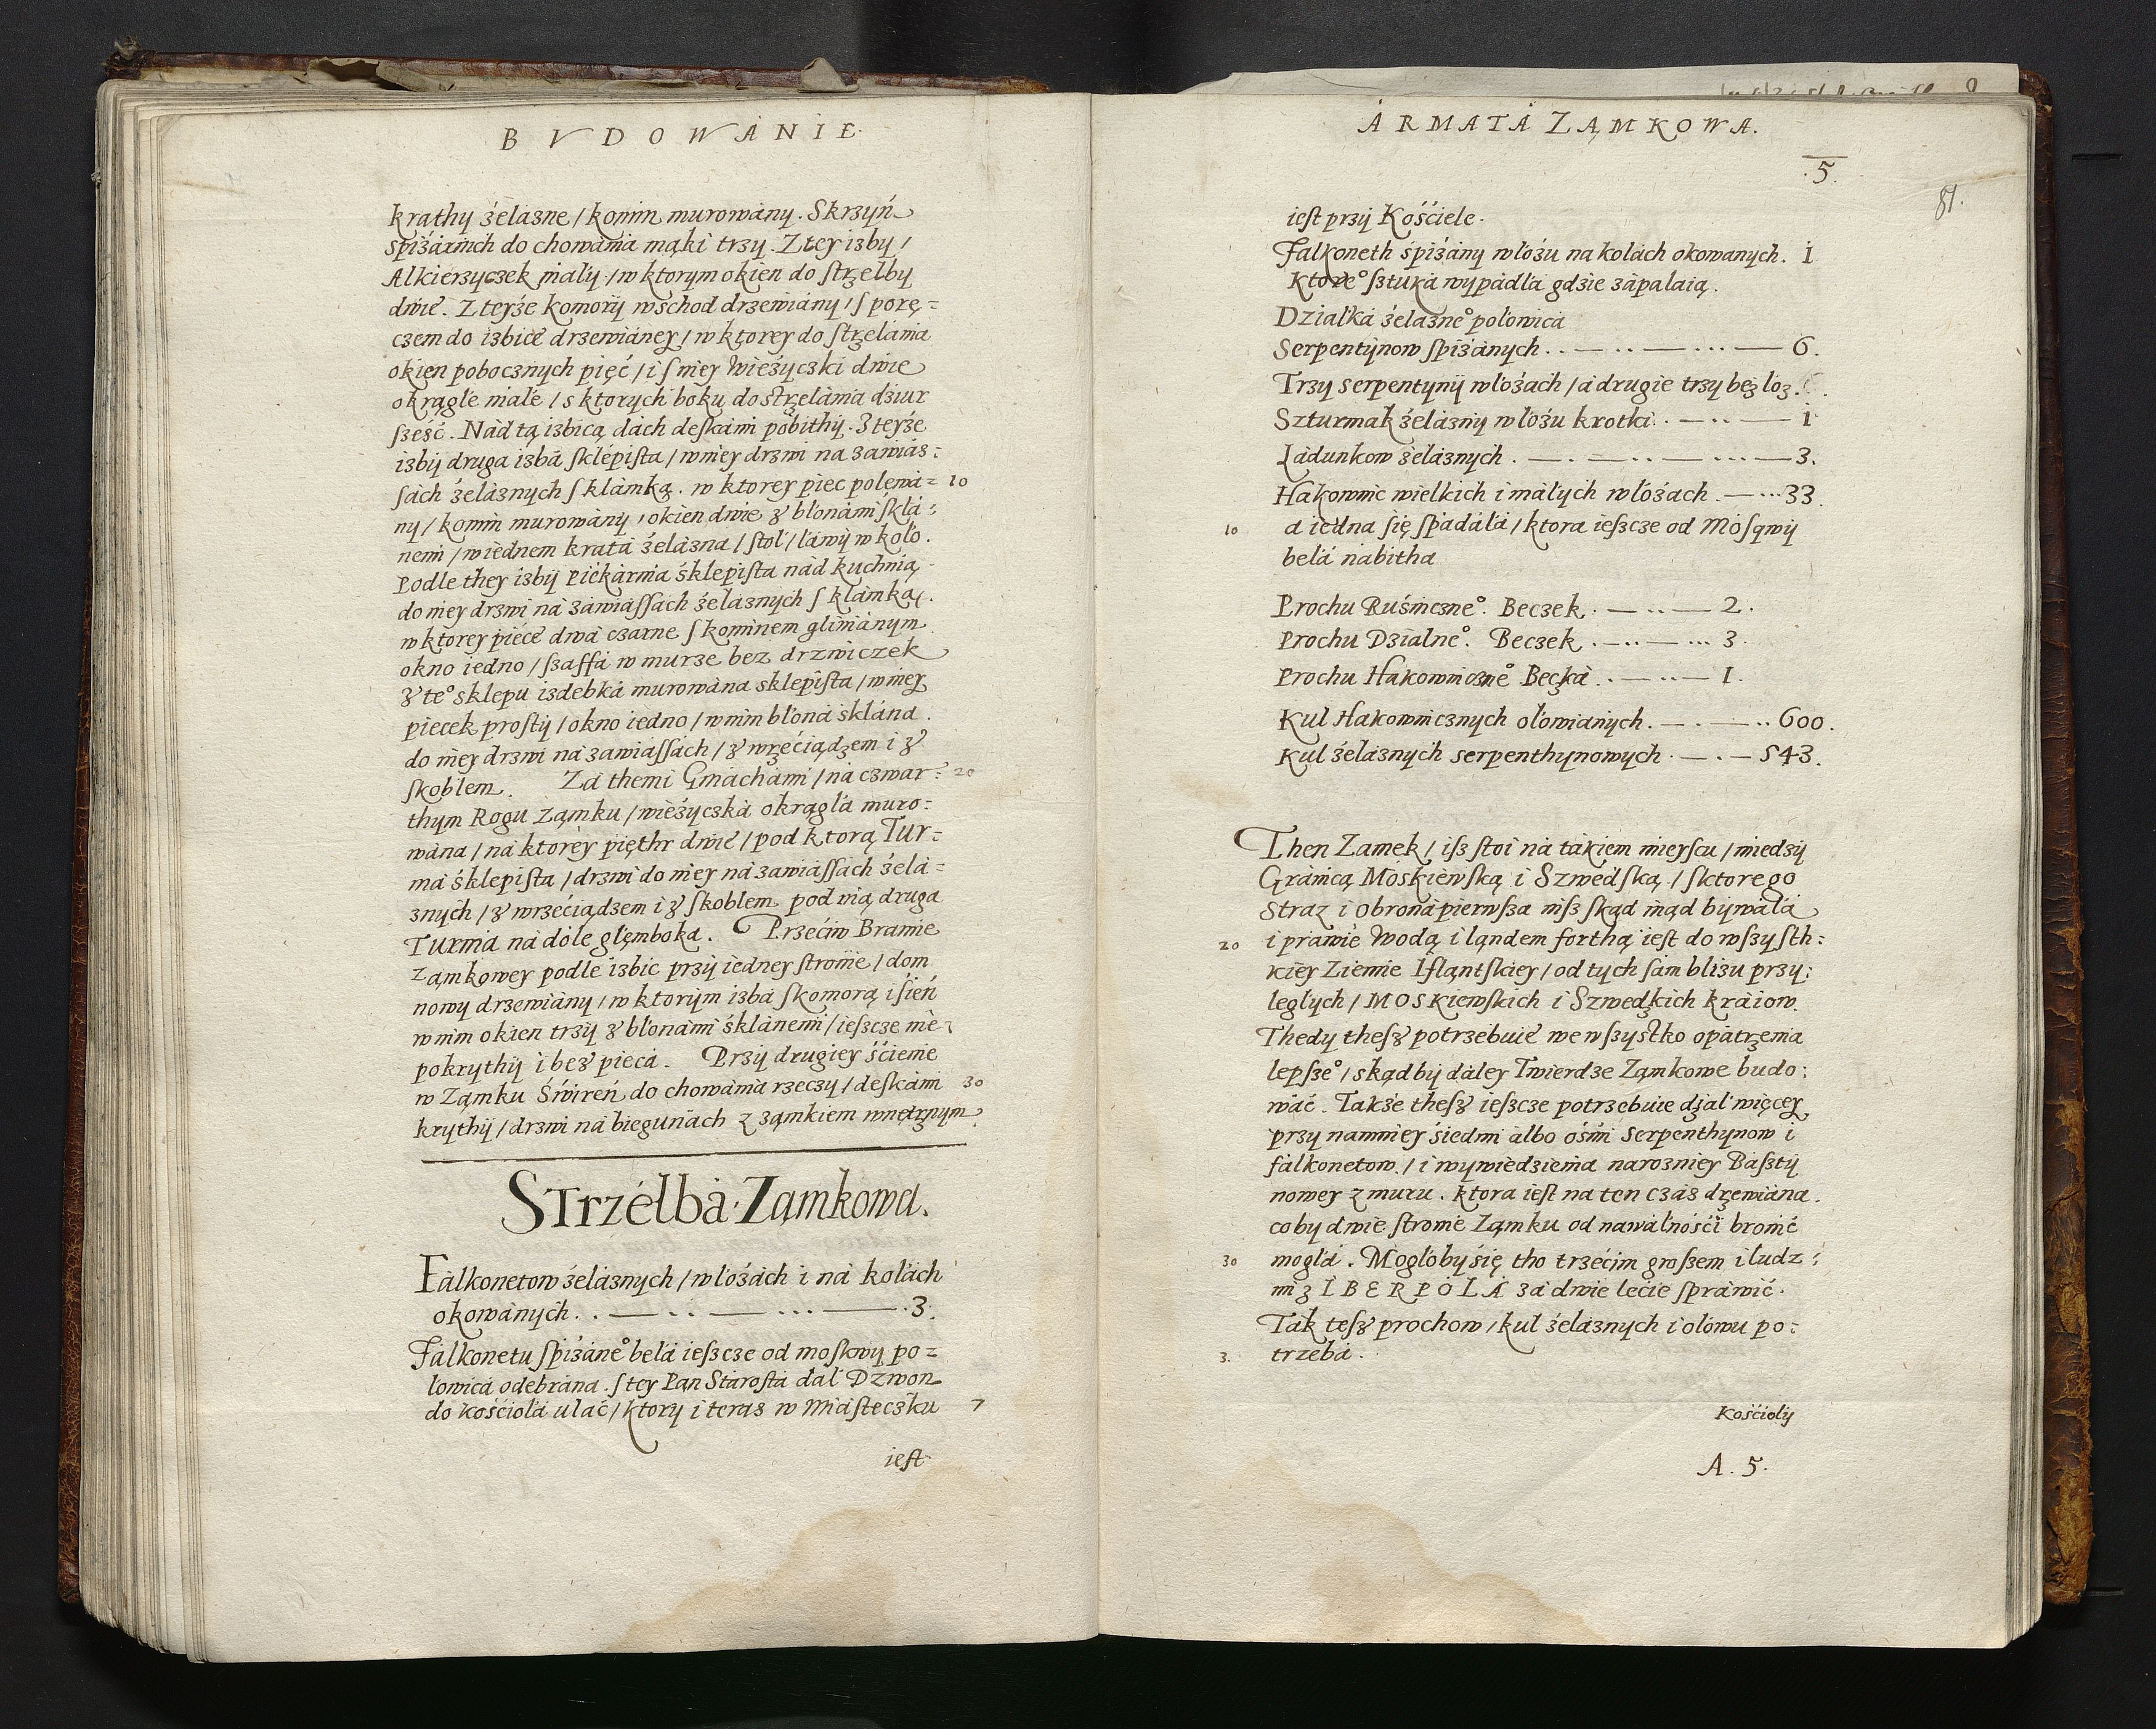 BVDOWÁNIE.
krathy żelazne / komin murowány. Skrzyń
spiżárnich do chowánia mąki trzy. Z tey izby /
Alkierzyczek máły / w ktorym okien do strzelby
dwie. Z teyże komory wschod drzewiány / s porę=
czem do izbice drzewiáney / w ktorey do strzelánia
okien pobocznych pięć / i s niey Wieżyczki dwie
okrągłe máłe / s ktorych boku do strzelánia dziur
sześć. Nád tą izbicą dách deskámi pobithy. Z teyże
izby druga izbá sklépista / w niey drzwi na zawiás=
sách żeláznych s klámką. w ktorey piec polewá= 10
ny / komin murowány / okien dwie z błonámi sklá=
nemi / w iednem kratá żelázna / stoł / ławy w koło.
Podle they izby Piekárnia sklepista nád kuchnią
do niey drzwi ná zawiássách żelaznych s klámką.
w ktorey piece dwá czarne s kominem glinianym
okno iedno / szaffá w murze bez drzwiczek
z te° sklepu izdebká murowána sklepista / w niey
piecek prosty / okno iedno / w nim błoná sklána.
do niey drzwi ná zawiássách / z wrzeciądzem i z
skoblem. Zá themi Gmáchámi / ná czwar= 20
thym Rogu Zamku / wieżyczká okrągłá muro=
wána / ná ktorey pięthr dwie / pod ktorą Tur=
má sklepista / drzwi do niey ná zawiássách żelá=
znych / z wrzeciądzem i z skoblem. pod nią druga
Turmá ná dole głęmboka. Przeciw Bramie
Zamkowey podle izbic przy iedney stronie / dom
nowy drzewiány / w ktorym izbá s komorą i sień
w nim okien trzy z błonámi sklánemi / ieszcze nie=
pokrythy i bez piecá. Przy drugiey ścienie
w Zamku Świreń do chowánia rzeczy / deskámi 30
krythy / drzwi ná biegunách z zamkiem wnętrznym.
STrzélbá Ząmkowa.
Fálkonetow żelaznych / w łożách i ná kołách
okowánych. . — . . — ... — .3.
Fálkonetu spiżáne° belá ieszcze od moskwy po=
łowicá odebrána. s tey Pan Stárostá dał Dzwon
do kościołá uláć / ktory i teraz w Miásteczku 7
iest
ÁRMATÁ ZĄMKOWA.
.5.
81.
iest przy Kościele.
Falkoneth spiżány w łożu na kołách okowanych. 1
Ktore° sztuká wypádłá gdzie zápaláią.
Dziáłká żelázne° połowicá
Serpentynow spiżánych . . — . . — ... — 6.
Trzy serpentyny w łożách / á drugie trzy bez łoz.
Szturmak żelázny w łożu krotki . . — . . — 1
Ładunkow żeláznych . — . — . . — ... — 3.
Hakownic wielkich i máłych w łożách . — ... 33.
10 a iedna się spadáłá / ktora ieszcze od Mosqwy
belá nabitha
Prochu Ruśniczne°. Beczek . — . . — 2.
Prochu Dziálne°. Beczek . — . . — ... 3.
Prochu Hakowniczne° Beczká . . — . . — 1.
Kul Hakownicznych ołowiánych. — . — . . 600.
Kul żeláznych serpenthynowych . — . — 543.
Then Zamek / isz stoi ná tákiem mieyscu / miedzy
Gránicą Moskiewską i Szwedską / s ktorego
Straz i Obroná pierwsza nisz skąd inąd bywáłá
20 i práwie Wodą i ląndem forthą iest do wszysth=
kiey Ziemie Ifląntskiey / od tych sam blizu przy=
ległych / MOSKiewskich i Szwedzkich kráiow.
Thedy thesz potrzebuie we wszystko opátrzenia
lepsze° / skąd by dáley Twierdze Ząmkowe budo=
wáć. Tákże thesz ieszcze potrzebuie dział więcey
przy namniey siedmi álbo ośmi Serpenthynow i
fálkonetow / i wywiedzienia narozniey Bászty
nowey z muru. ktora iest na ten czás drzewiána.
co by dwie stronie Zamku od nawáłności bronić
30 mogłá. Mogłoby się tho trzecim groszem i ludz=
mi z IBERPOLÁ zá dwie lecie spráwić.
Ták tesz prochow / kul żeláznych i ołowu po=
3. trzebá.
Kościoły
A. 5.